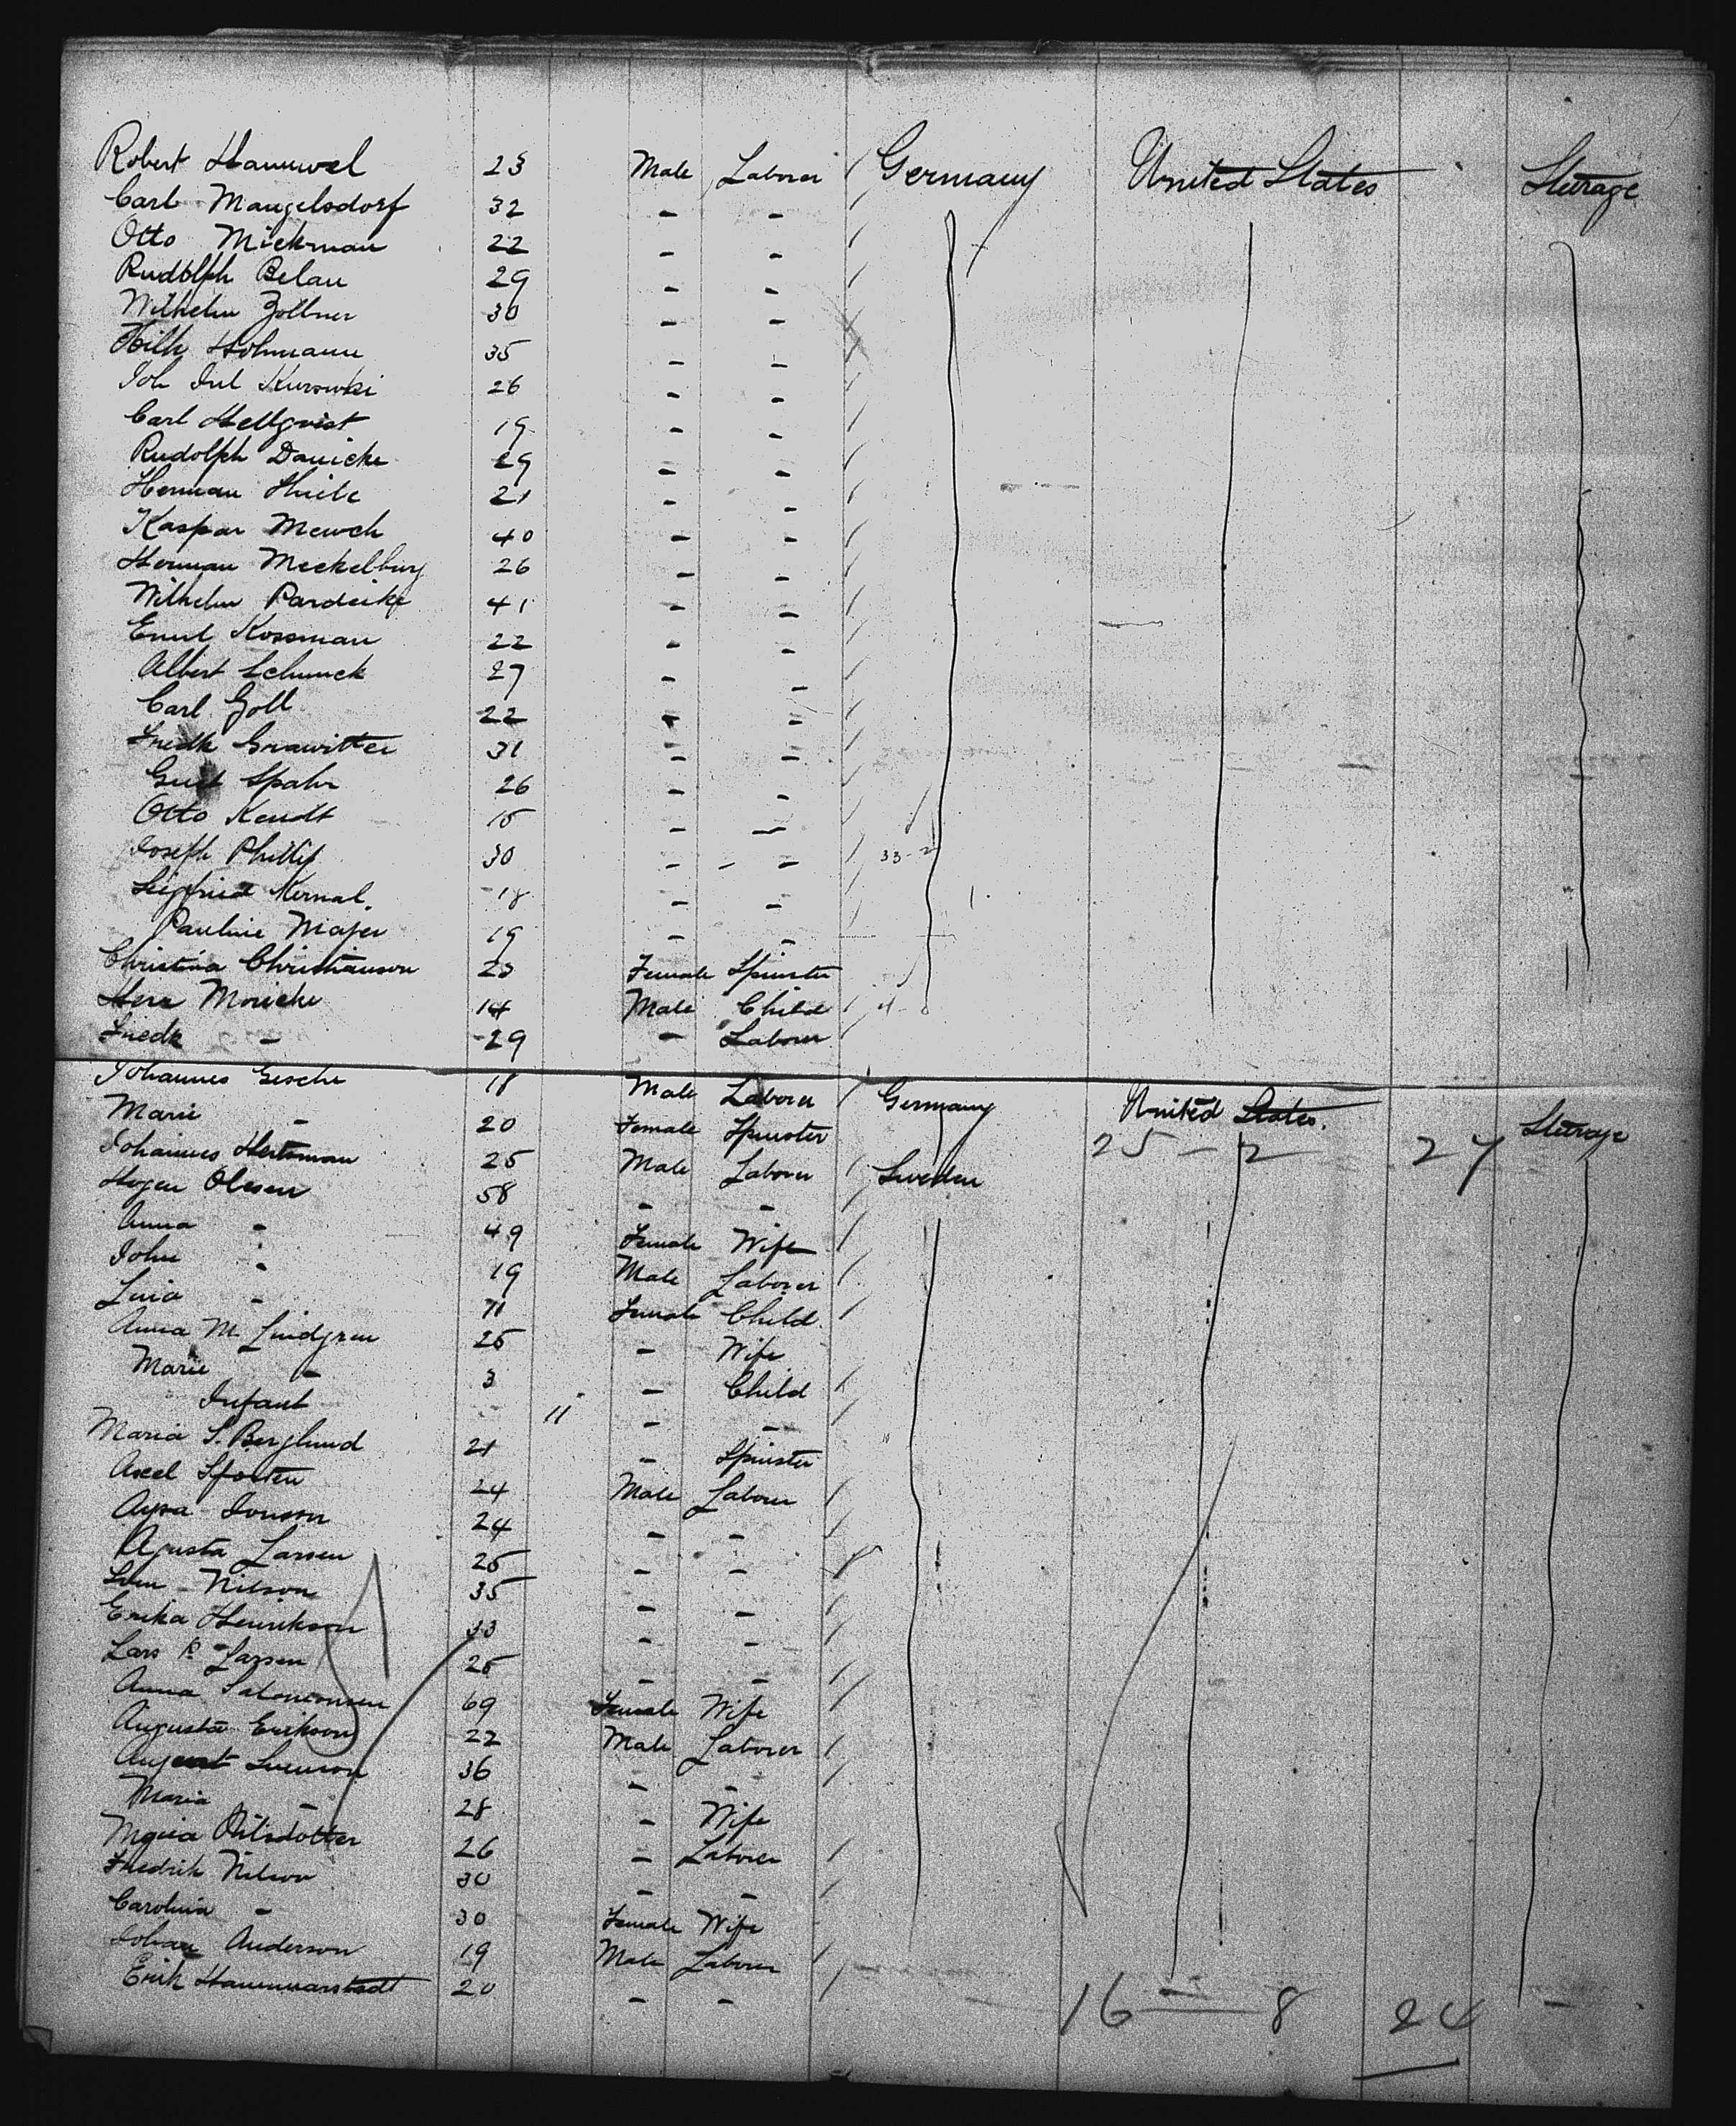 Robert Hammel 23 Male Laborer Germany United States Steerage
Carl Mangelsdorf 32 - -
Otto Mickman 22 - -
Rudolph Belau 29 - -
Wilhelm Zollner 30 - -
Hohmann 35 - -
Joh Jul Kurowski 26 - -
Carl Hellqvist 19 - -
Rudolph Danicke 29 - -
Herman Thiele 21 - -
Kaspar 40 - -
Herman Meckelburg 26 - -
Wilhelm Pardeike 41 - -
Emil Kossman 22 - -
Albert Schunck 27 - -
Carl Goll 22 - -
Friedk Grawitter 31 - -
Gust Spahr 26 - -
Otto Kendt 15 - -
Joseph Phillip 30 - - - 33-2
Siegfried Kernal. 18 - -
Pauline Majer 19 - -
Christina Christianson 23 Female Spinster
Moricke 14 Male Child
Friedk - 29 - Laborer
Johannes Gesche 18 Male Laborer Germany United States. Steerage
Marie - 20 Female Spinster 25 - 2 27
Johannes Hertzman 25 Male Laborer Sweden
Olesen 58 - -
Anna - 49 Female Wife
John - 19 Male Laborer
Lina - 11 Female Child
Anna M. Lindgren 25 - Wife
Marie - 3 - Child
Infant 11 - -
Maria S. Berglund 21 - Spinster
Axel 24 Male Laborer
Jonson 24 - -
Agusta Larsen 25 - -
Sven Nilson 35 - -
Erika Henrikson 33 - -
Lars P. Larsen 25 - -
Anna Salomonsen 69 Female Wife
Augusta Erikson 22 Male Laborer
August Svenson 36 - -
Maria - 28 - Wife
Nilsdotter 26 - Laborer
Fredrik Nilson 30 - -
Carolina - 30 Female Wife
Johan Anderson 19 Male Laborer
Erik Hammarstedt 20 - -
16 - 8 24